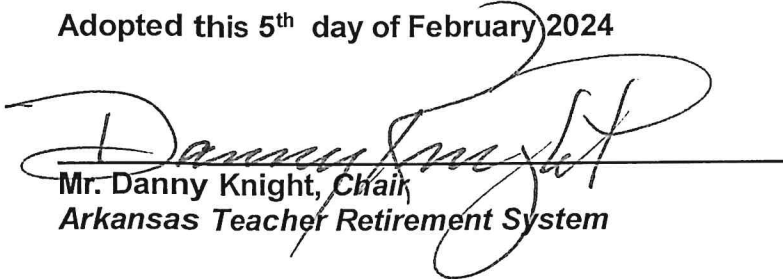 Adopted this 5th day of February 2024
Danny Knight
Mr. Danny Knight, Chair
Arkansas Teacher Retirement System